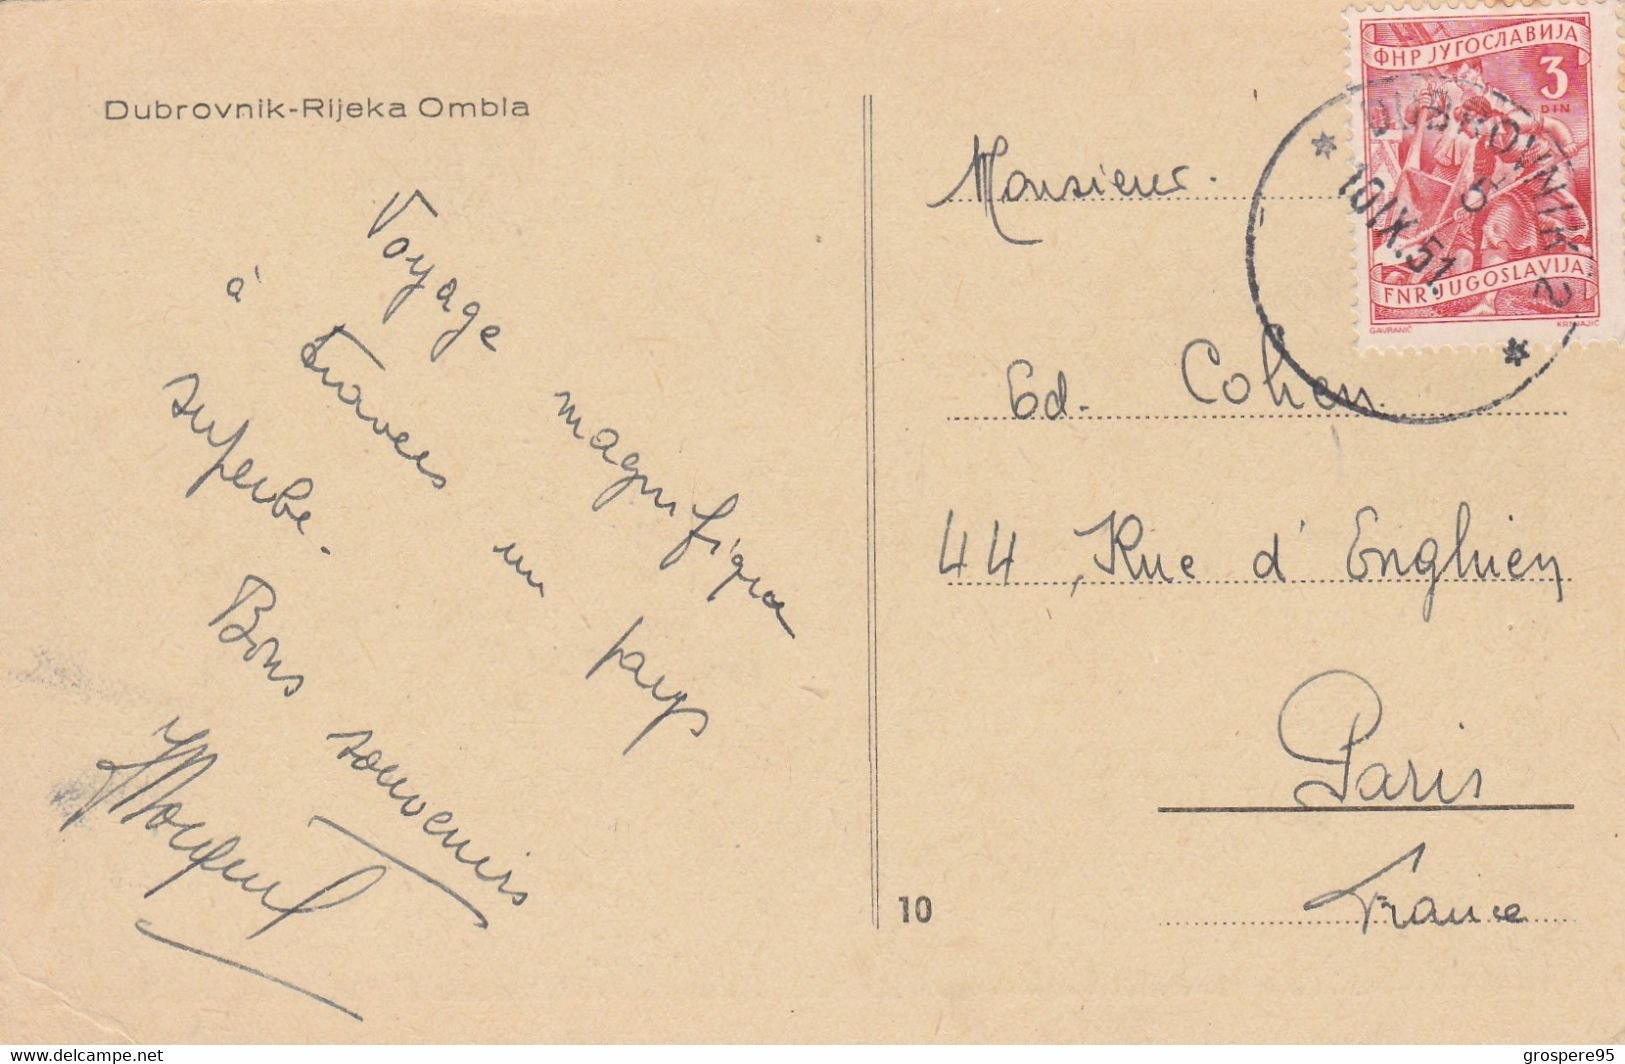 Dubrovnik-Rijeka Ombla
Voyage magnifique
à travers un pays
superbe.
Bons souvenirs
ФНР ЈУГОСЛАВИЈА
3
DIN
FNR JUGOSLAVIJA
GAVRANIĆ KRNJAJIĆ
* DUBROVNIK 2 *
5
10.IX.51.
Monsieur.
Ed. Cohen.
44, Rue d'Enghien
Paris
France
10
www.delcampe.net
grospere95